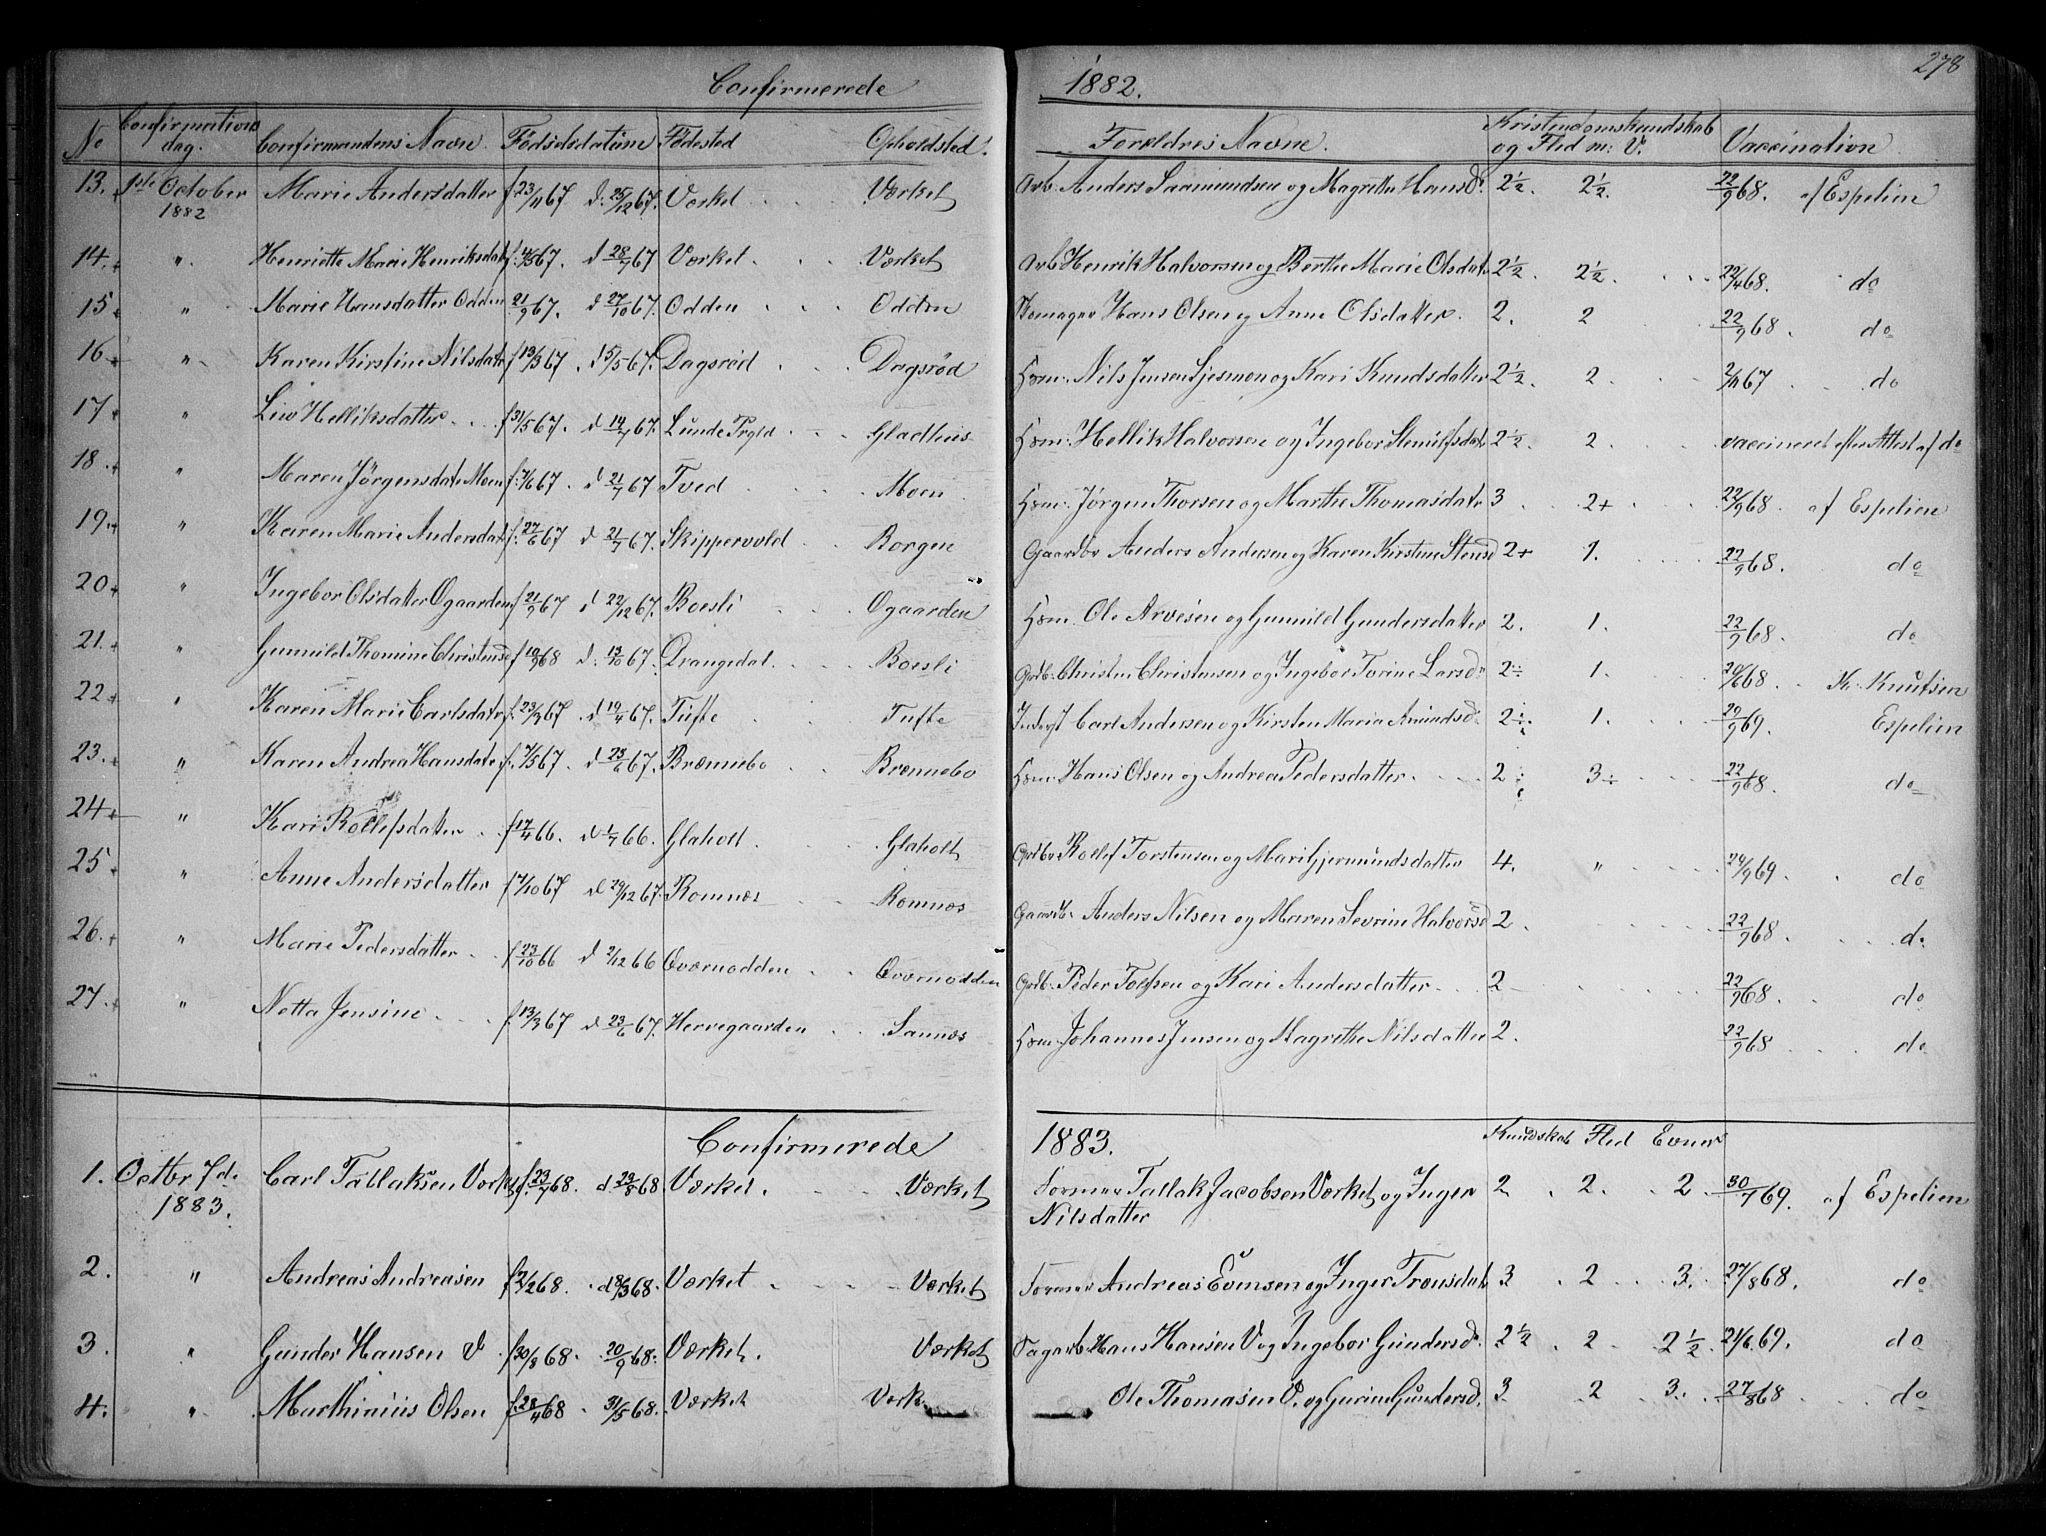 278
Confirmerede 1882.
No Confirmations dag. Confirmandens Navn. Fødselsdatum Fødested Opholdsted. Forældres Navne. Kristendomskundskab og Flid m: V. Vaccination
13. 1ste October 1882 Marie Andersdatter f 23/11 67 d. 25/12 67. Værket Værket Arb. Anders Saamundsen og Magrethe Hansd. 2½. 2½. 22/9 68. af Espelien
14. " Henriette Marie Henriksdat f. 4/5 67. d 28/7 67 Værket Værket Arb. Henrik Halvorsen og Berthe Marie Olsdat 2½. 2½. 22/4 68. do
15 " Marie Hansdatter Odden 21/9 67. d 27/10 67. Odden Odden Skomager Hans Olsen og Anne Olsdatter. 2. 2 22/9 68. do
16 " Karen Kirstine Nilsdat f 13/3 67. d 5/5 67. Dagsrød Dagsrød Hsm. Nils Jensen og Kari Knudsdatter 2½. 2. 2/11 67 do
17 " Liv Helliksdatter f 31/5 67. d 14/7 67. Lunde Prgld Gladhus Hsm. Hellik Halvorsen og Ingebor 2½. 2. vaccineret efter Attest af do
18. " Maren Jørgensdat Moen f. 7/6 67. d 21/7 67 Tved Moen Hsm. Jørgen Thorsen og Marthe Thomasdatr 3 2+ 22/9 68. af Espelien
19. " Karen Marie Andersdat f. 27/6 67 d 21/7 67. Skippervold Borgen Gaardbr Anders Andersen og Karen Kirstine 2+ 1. 22/9 68. do
20 " Ingebor Olsdatter Øgaarden f 21/9 67 d 22/12 67. Boesli Øgaarden Hsm. Ole Arvesen og Gunnild Gundersdatter 2. 1. 22/9 68. do
21. " Gunnild Thomine Christensd f 10/9 68 d. 13/10 67. Drangedal. Boesli Grdb. Christen Christensen og Ingebor Torine Larsd. 2÷ 1. 20/6 68. K. Knutsen
22 " Karen Marie Carlsdatr f. 23/3 67. d 19/4 67. Tufte Tufte Inderst Carl Andersen og Kirsten Maria Amundsd. 2÷. 1. 20/9 69. Espelien
23. " Karen Andrea Hansdatr f. 7/5 67. d 23/6 67. Brænnebo Brænnebo Hsm. Hans Olsen og Andrea Pedersdatter. 2÷ 3÷ 22/9 68. do
24 " Kari Rollefsdatter f 17/4 66. d 1/7 66. Glaholt. Glaholt Grdbr Rollef Torstensen og Mari Gjermundsdatter 4. " 24/9 69. do
25 " Anne Andersdatter f 7/10 67 d 29/12 67. Romnæs Romnæs Gaardb. Anders Nilsen og Maren Sevrine Halvorsd 2. 22/9 68. do
26. " Marie Pedersdatter f 23/10 66 d 2/12 66 Qværnodden Qværnodden Grdb. Peder Tollefsen og Kari Andersdatter 2 22/9 68. do
27. " Netta Jensine f. 13/3 67 d 23/6 67. Herregaarden Sannæs Hsm. Johannes Jensen og Magrethe Nilsdatter 2. 22/9 68 do
Confirmerede 1883. Kundskab Flid Evner
1. Octbr 7d. 1883. Carl Tallaksen Værket f. 23/7 68. d 23/8 68 Værket. Værket Former Tallak Jacobsen Værket og Inger Nilsdatter 2. 2. 2. 30/7 69. af Espelien
2. " Andreas Andreasen f 2/2 68. d 8/3 68. Værket Værket Former Andreas Evensen og Inger Tronsdat 3 2 3. 27/8 68. do
3. " Gunder Hansen V f 30/8 68. 20/9 68. Værket. Værket Sagarb. Hans Hansen V og Ingebor Gundersd. 2½ 2 2½ 21/6 69. do
4. " Marthinius Olsen f. 28/4 68 31/5 68. Værket Værk. Ole Thomasen V. og Gurine Gundersd. 3 2 3. 27/8 68 do